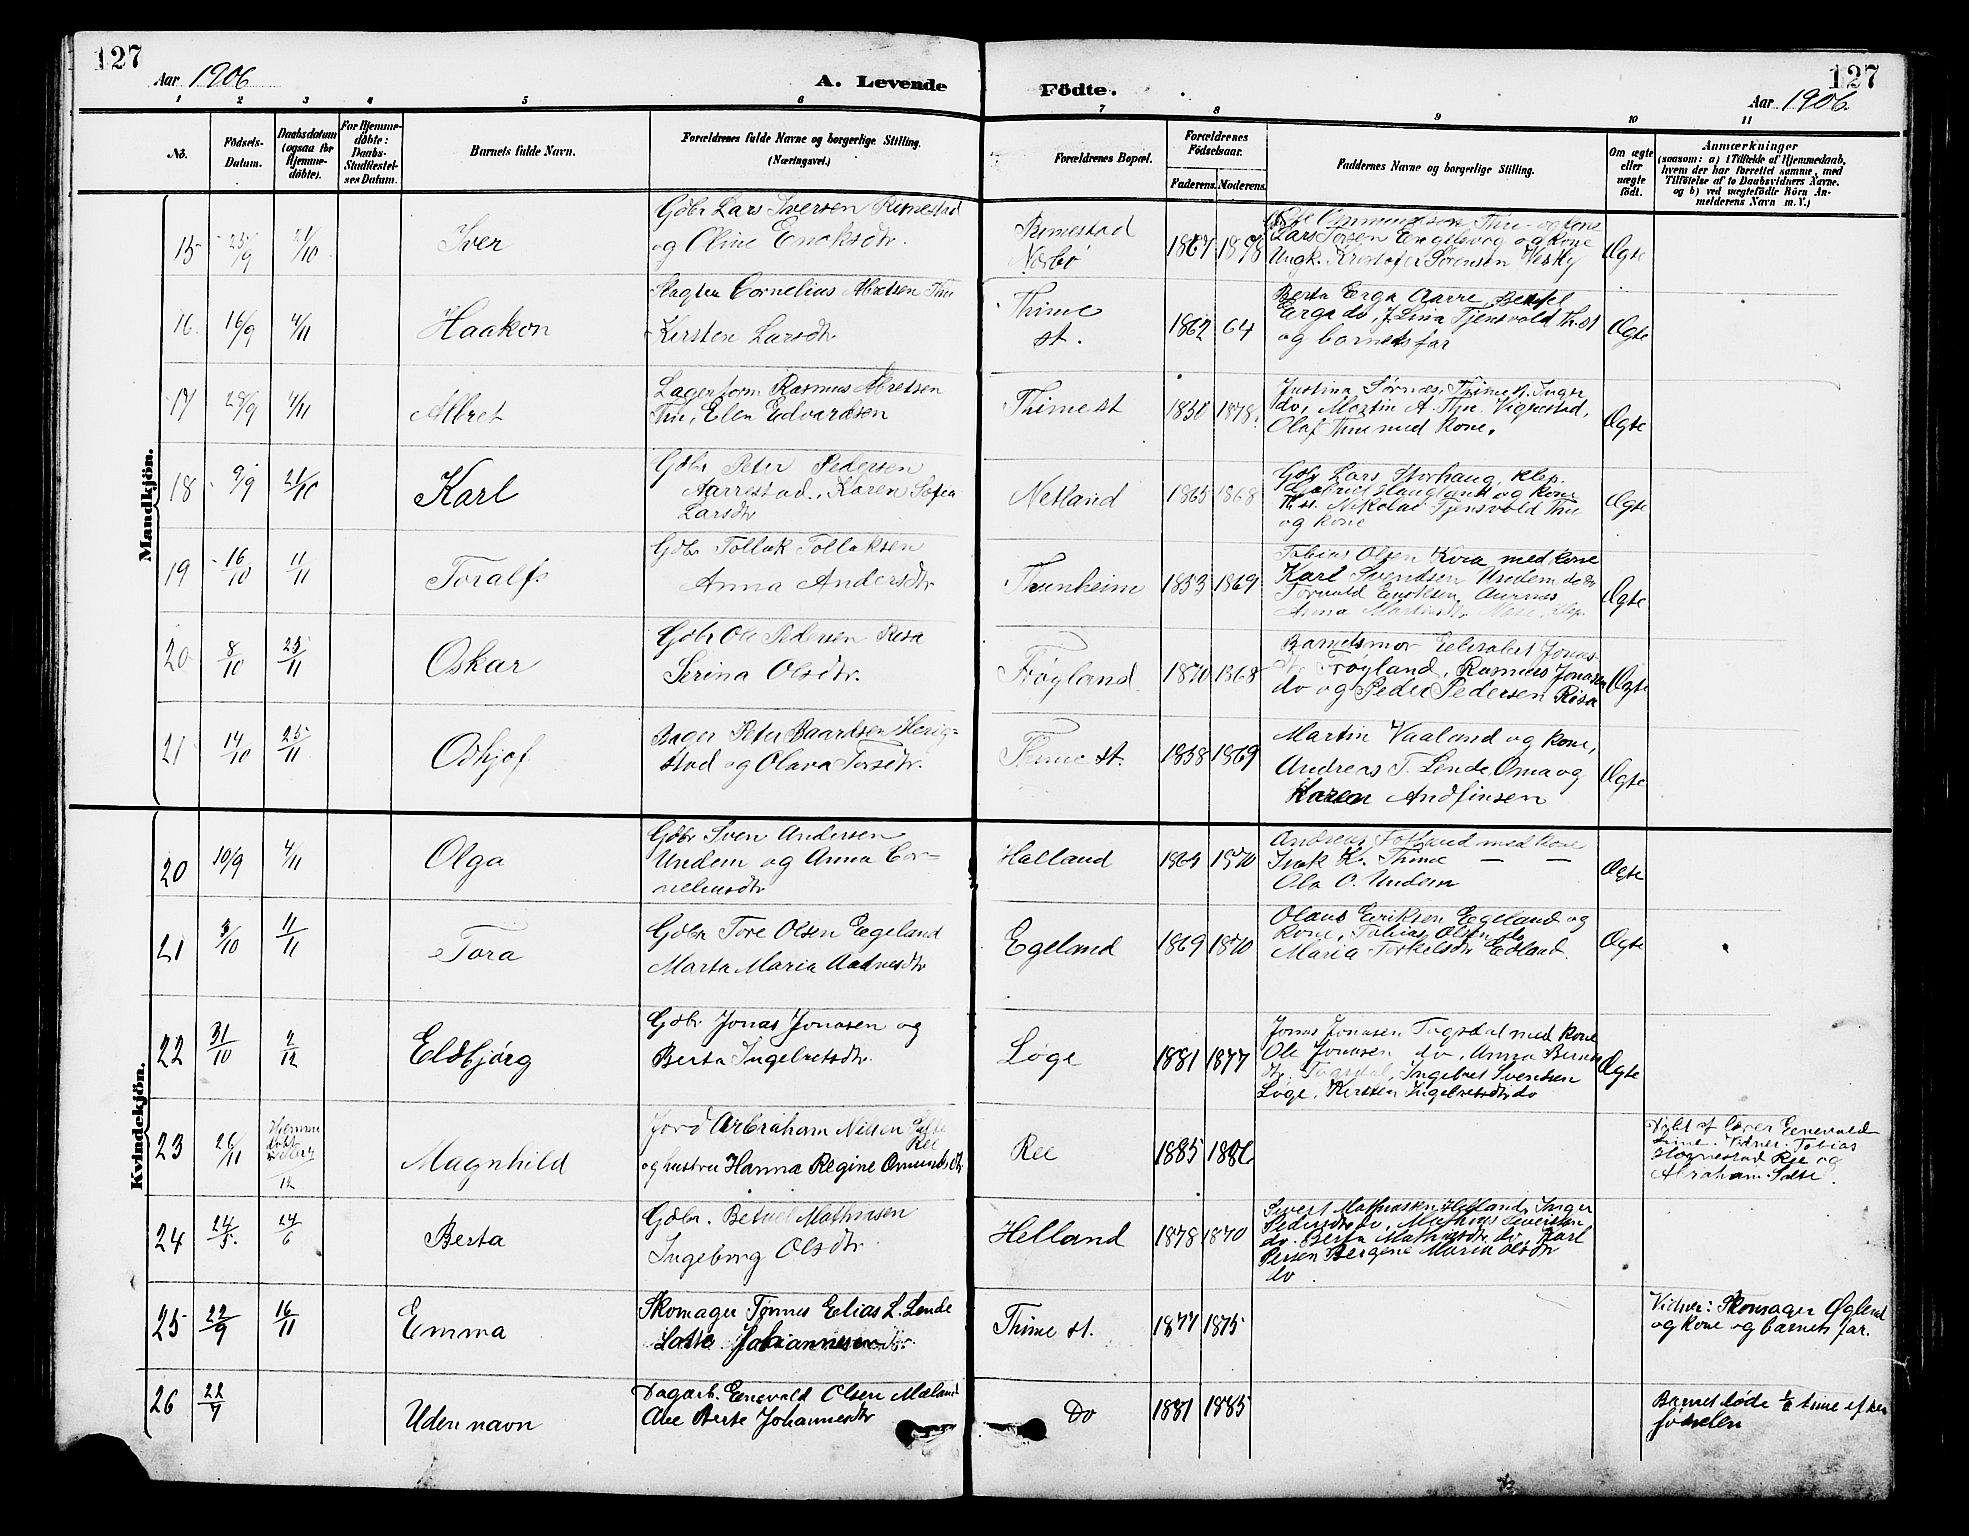 127
Aar 1906
A. Levende
Födte.
127
Aar 1906.
1 2 3 4 5 6 7 8 9 10 11
No.
Födsels-Datum.
Daabsdatum (ogsaa for Hjemmedöbte).
For Hjemmedöbte: Daabs-Stadfæstelses Datum.
Barnets fulde Navn.
Forældrenes fulde Navne og borgerlige Stilling.
(Næringsvei.)
Forældrenes Bopæl.
Forældrenes Födselsaar.
Faderens. Moderens.
Faddernes Navne og borgerlige Stilling.
Om ægte eller uægte födt.
Anmærkninger
(saasom: a) i Tilfælde af Hjemmedaab,
hvem der har forrettet samme, med
Tilföielse af to Daabsvidners Navne.
og b) ved uægtefödte Börn Anmelderens Navn m. V.)
Mandkjön.
15 25/9 21/10 Iver
Gdbr Lars Iversen Rimestad
og Oline Enoksdtr.
Rimestad
Nærbø
1867 1878
Lars Torsen Engelsvog og kone
Ungk. Kristofer Sörensen Vesky
Ægte
16. 16/9 4/11 Haakon
Slagter Cornelius Abretsen Thu
Kirsten Larsdtr
Thime
st.
1862 64
Berta Erga Aarre,
Erga do, J. Lina Tjensvold Th. st
og barnets far
Ægte
17 29/9 4/11 Albret
Lagerform Rasmus Abretsen
Thu, Elen Edvardsen
Thime st
1851 1878.
Justina Sörnes, Thime st. Inger
do, Martin A. Thu Vigrestad,
Olaf Thu med kone.
Ægte
18 9/9 21/10 Karl
Gdbr Peter Pedersen
Aarrestad, Karen Sofia
Larsdtr
Netland
1865 1868
Gdbr Lars Storhaug, Klep.
Gabriel Haugland og kone
Th. st. Nikolai Tjensvold Thu
og kone
Ægte
19 16/10 11/11 Toralfs
Gdbr Tollak Tollaksen
Anna Andersdtr
Thunheim
1853 1869
Tobias Olsen Kvia med kone
Karl Svendsen Undem do
Torvald Enoksen Aurnes
Anna
Ægte
20 8/10 25/11 Oskar
Gdbr Ole Pedersen Risa
Serina Olsdtr.
Frøyland
1870 1868
Barnets mor Elisabet Jonas-
dtr Frøyland, Rasmus Jonasen
do og Peder Pedersen Risa
Ægte
21 14/10 25/11 Oskjof
Bager Peter Baardsen Herig=
stad og Olava Torsdtr.
Thime st.
1858 1869
Martin Vaaland og kone,
Andreas T. Lende, Oma og
Karen Andfinsen
Ægte
Kvindekjön.
20 10/9 4/11 Olga
Gdbr Sven Andersen
Undem og Anna Cor=
neliusdtr
Halland
1864 1870
Andreas Fotland med kone
Isak K. Thime — —
Ola O. Undem
Ægte
21 3/10 11/11 Tora
Gdbr Tore Olsen Egeland
Marta Maria Aadnesdtr
Egeland
1869 1870
Olaus Eriksen Egeland og
kone, Tobias Olsen do
Maria Torkelsdtr Edland.
Ægte
22 31/10 2/12 Eldbjørg
Gdbr Jonas Jonasen og
Berta Ingebretsdtr.
Løge
1881 1877
Jonas Jonasen Tugsdal med kone
Ole Jonasen do, Anna
dtr. Tugsdal, Ingebret Svendsen
Løge, Kirsten Ingebretsdtr do
Ægte
23 26/11 Hjemme døbt /12 Magnhild
Jord Arbraham Nilsen Salte
Ree
og hustru Hanna Regine Omundsdtr
Ree
1885 1886
Døbt af lærer Enevald
Lime. Vidner: Tobias
Hognestad Ree og
Abraham Salte.
24 24/5 24/6 Berta
Gdbr. Betuel Mathiasen
Ingeborg Olsdtr.
Helland
1878 1870
Sivert Mathiasen Helland, Inger
Pedersdtr do, Mathias Sivertsen
do. Berta Mathiasdtr do, Karl
Persen Bergene Maria Olsdtr
do.
25 22/9 16/11 Emma
Skomager Tønnes Elias L. Lende
Lotte Johannesen
Thime st.
1877 1875
Vidner: Skomager Øglend
og kone og barnets far.
26 22/7 Uden navn
Dagarb. Enevald Olsen Mæland
Ane Berte Johannesdtr
Do
1881 1885
Barnet døde ½ time efter
fødselen